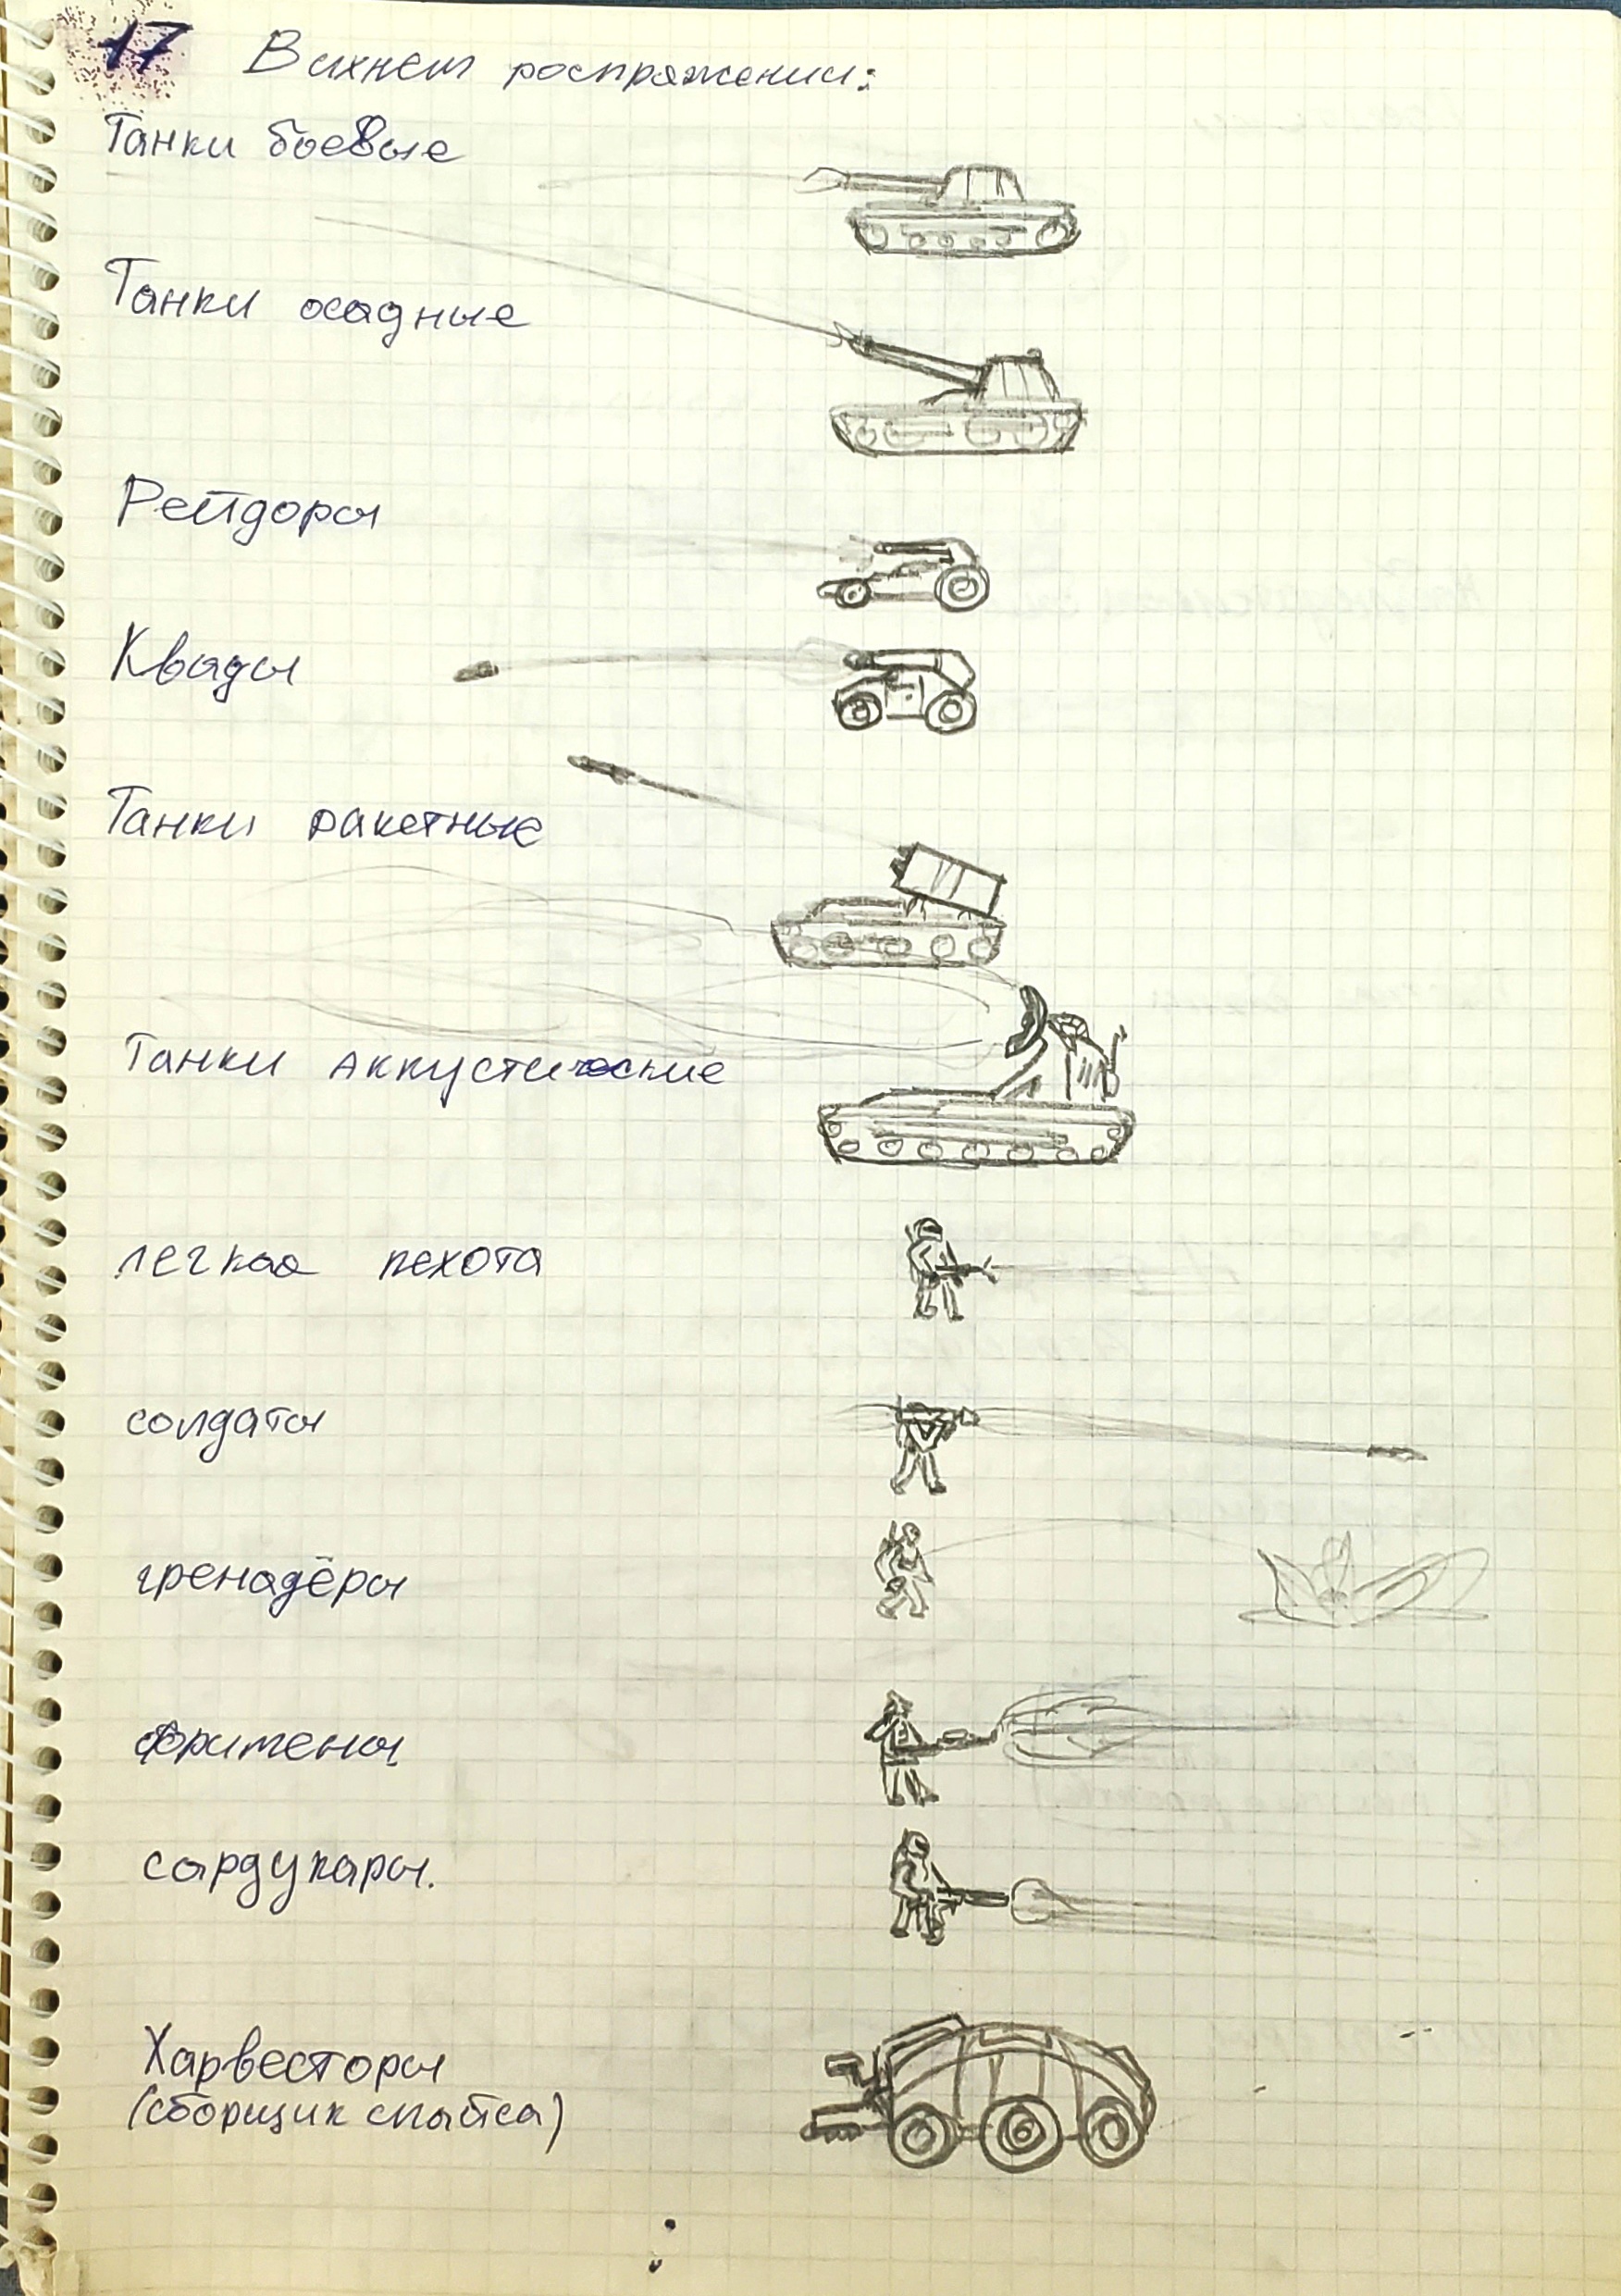 17 В ихнем роспряжении:
Танки боевые
Танки осадные
Рейдоры
Квады
Танки ракетные
Танки аккустические
легкая пехота
солдаты
гренадёры
фримены
сардукары.
Харвесторы
(сборщик спайса)